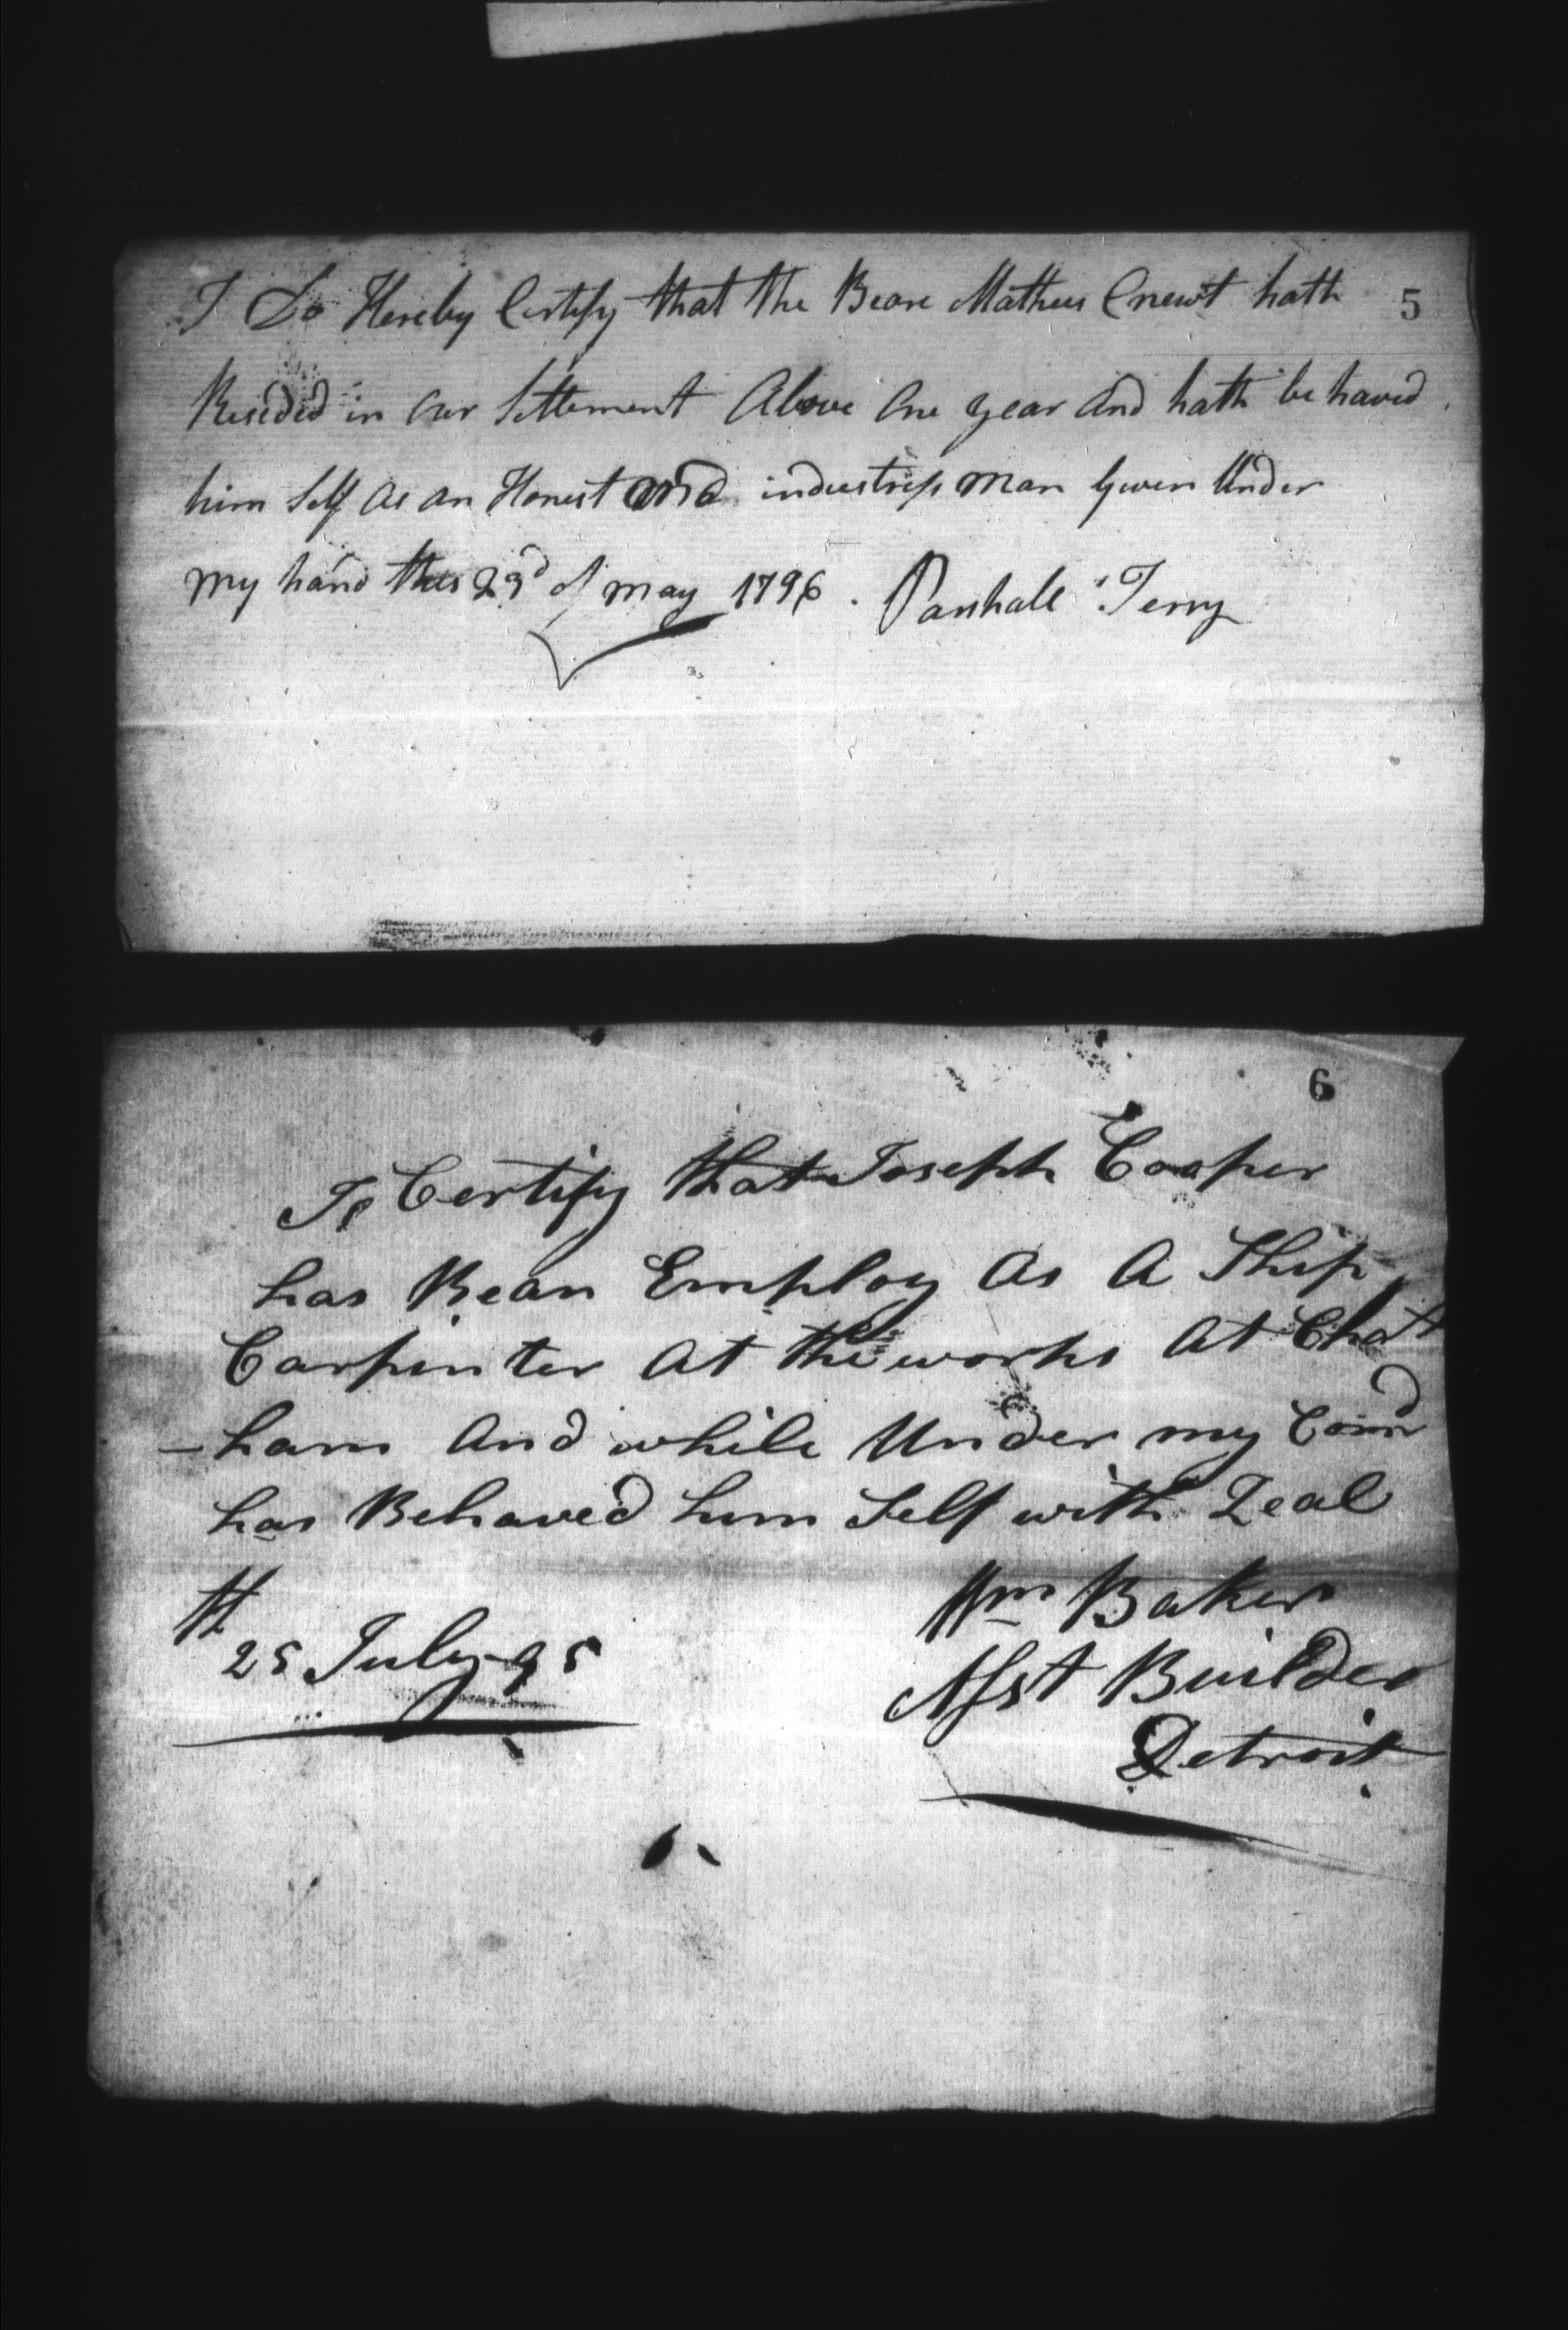 5
I Do Hereby Certify that the Beare Mathew Cnewt hath
Reseded in our Settlement Above One year and hath be haved
him Self as an Honest and industress man Given Under
my hand this 23d of may 1796. Parshall Terry
6
To Certify that Joseph Cooper
has Bean Employ As A Ship
Carpinter At the works At Chat
-ham And while Under my Comd
has Behaved him Self with Zeal
th
25 July 95
Wm Baker
Asst Builder
Detroit